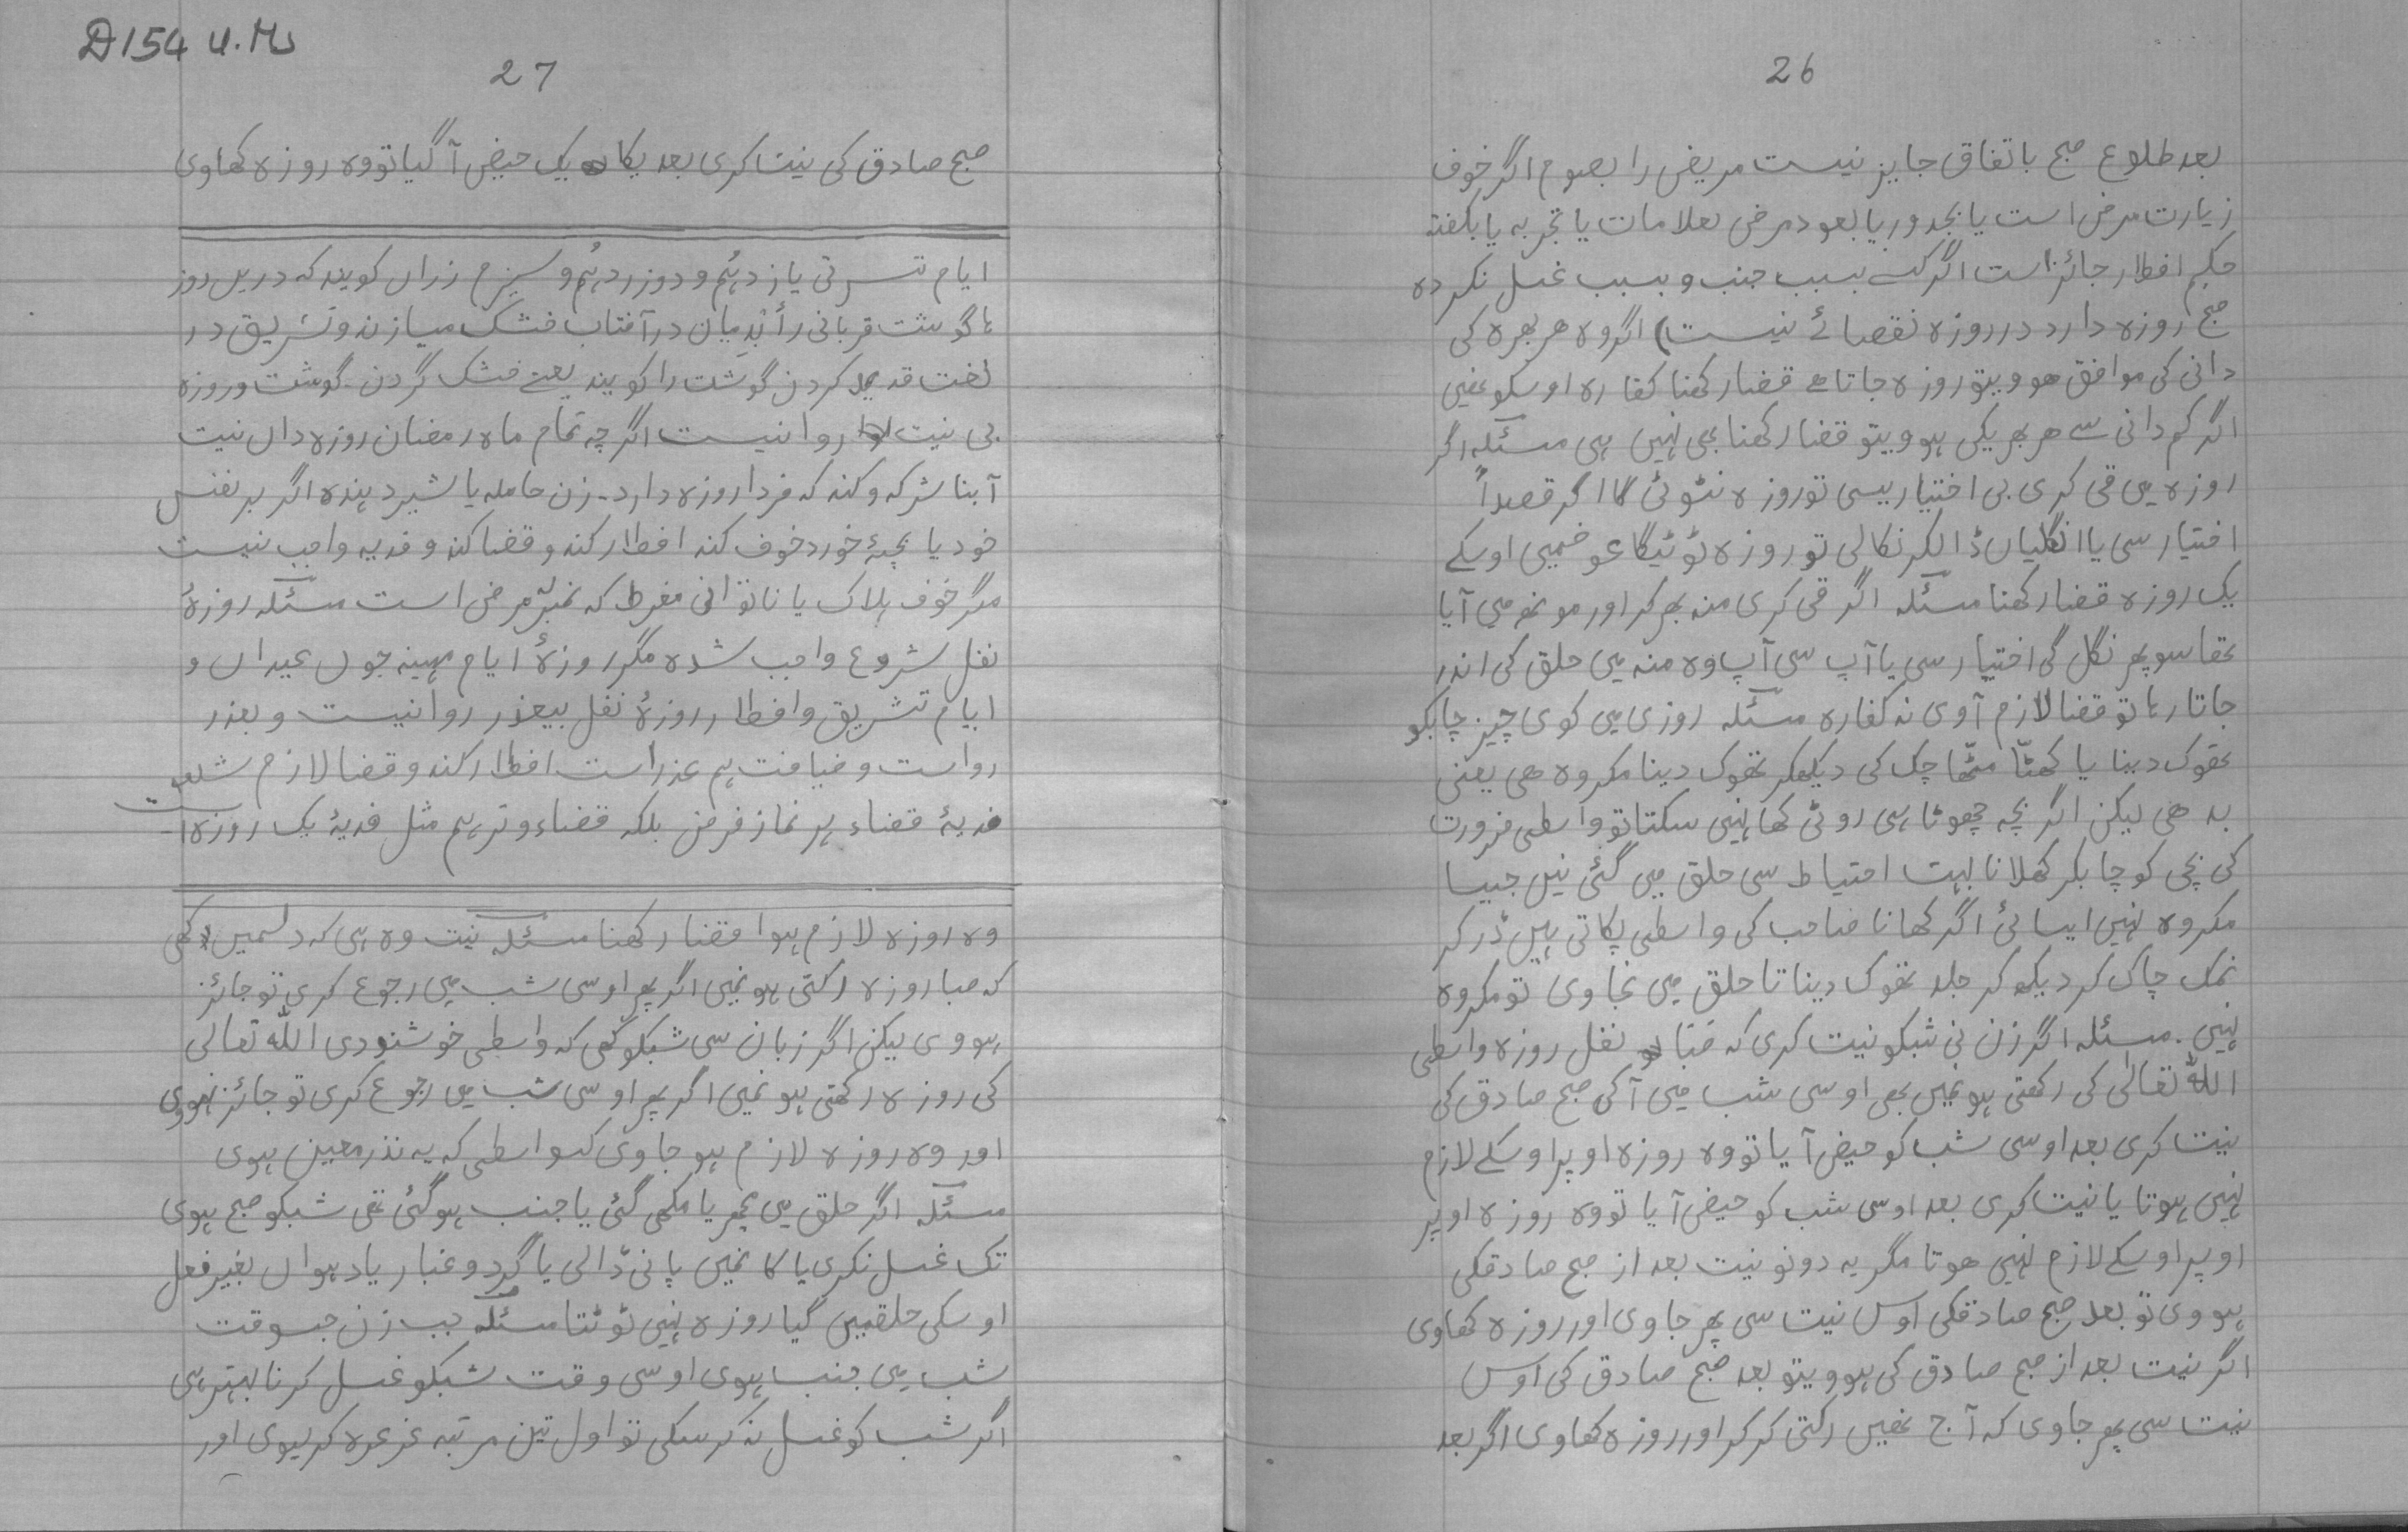 26
بعد طلوع صبح باتفاق جایز نیست مریض را بصوم اگر خوف
زیارت مرض است یا بجدور یا بعود مرض بعلامات یا تجربه یا بگفته
حکیم افطار جائز است اگر کسے بسبب جنب و بسبب غسل نکرده
صبح روزه دارد در روزه نقصانے نیست) اگر وہ هر بھرہ کی
دانی کی موافق هوویتو روزہ جاتا هے قضا رکھنا کفارہ اوسکو نہیں
اگر کم دانی سے هر بھریکی ہوویتو قضا رکھنا بھی نہیں ہی مسئلہ اگر
روزہ می قی کری بی اختیاریسی تو روزہ نٹوئی گا اگر قصداً
اختیار سی یا انگلیاں ڈالکر نکالی تو روزہ ٹوٹیگا عوضمیی اوسکے
یک روزہ قضا رکھنا مسئلہ اگر قی کری منہ بھر کر اور مونھ میی آیا
تھا سو پھر نگل گی اختیار سی یا آپ سی آپ وہ منہ میی حلق کی اندر
جاتا رہا تو قضا لازم آوی نہ کفارہ مسئلہ روزی میی کوی چیز چابکو
تھوک دینا یا کھٹّا مٹّھا چک کی دیکھکر تھوک دینا مکروہ هی یعنی
بد هی لیکن اگر بچہ چھوٹا ہی روٹی کھا نہیں سکتا تو واسطی ضرورت
کی بچی کو چابکر کھلانا بہت احتیاط سی حلق میی گئی نیں جیسا
مکروہ نہیں ایسائی اگر کھانا صاحب کی واسطی پکاتی ہیں ڈر کر
نمک چاک کر دیکھ کر جلد تھوک دینا تا حلق میی نجاوی تو مکروہ
نہیی۔ مسئلہ اگر زن نی شبکو نیت کری کہ صبا نفل روزہ واسطی
اللہ تعالیٰ کی رکھتی ہو نمیں بھی اوسی شب میی آکی صبح صادق کی
نیت کری بعد اوسی شب کو حیض آیا تو وہ روزہ اوپر اوسکے لازم
نہیی ہوتا یا نیت کری بعد اوسی شب کو حیض آیا تو وہ روزہ اوپر
اوپر اوسکے لازم نہیی هوتا مگر یہ دونو نیت بعد از صبح صادقکی
ہووی تو بعد صبح صادقکی اوس نیت سی پھر جاوی اور روزہ کھاوی
اگر نیت بعد از صبح صادق کی ہوویتو بعد صبح صادق کی اوس
نیت سی پھر جاوی کہ آج نھیں رکتی کر کر اور روزہ کھاوی اگر بعد
D154 U.Ms
27
صبح صادق کی نیت کری بعد یکا یک حیض آگیا تو وہ روزہ کھاوی
ایام تشرتی یازدہُم و دوزردہُم و سیزم زراں کویند کہ دریں روز
ہا گوشت قربانی را درآفتاب خشک میسازند و تشریق در
لغت قدید کردن گوشت را کویند یعنے خشک گردن۔ گوشت و روزہ
بی نیت روا نیست اگرچہ تمام ماہ رمضان روزہ داں نیت
آبنا شرکہ و کند کہ فردا روزہ دارد۔ زن حاملہ یا شیر دہندہ اگر بر نفس
خود یا بچۂ خورد خوف کند افطار کند و قضا کند و فدیہ واجب نیست
مگر خوف ہلاک یا ناتوانی مفرط کہ مرض است مسئلہ روزۂ
نفل شروع واجب شدہ مگر روزۂ ایام مہینہ چوں عیداں و
ایام تشریق و افطار روزۂ نفل بیعذر روا نیست و بعذر
رواست و ضیافت ہم عذراست افطار کند و قضا لازم شد
فدیۂ قضاء ہر نماز فرض بلکہ قضاء وتر ہم مثل فدیۂ یک روزہ است
وہ روزہ لازم ہوا قضا رکھنا مسئلہ نیت وہ ہی کہ دلمیں کہی
کہ صبا روزہ رکتی ہو نمیں اگر پھر اوسی شب میی رجوع کری تو جائز
ہووی لیکن اگر زبان سی شبکو کہی کہ واسطی خوشنودی اللہ تعالی
کی روزہ رکھتی ہو نمیں اگر پھر اوسی شب میی رجوع کری تو جائز نہووی
اور وہ روزہ لازم ہو جاوی کسواسطی کہ یہ نذر معین ہوی
مسئلہ اگر حلق میی مچھر یا مکھی گئی یا جنب ہو گئی تھی شبکو صبح ہوی
تک غسل نکری یا کا نمیں پانی ڈالی یا گرد و غبار یا دہواں بغیر فعل
اوسکی حلقمیں گیا روزہ نہیی ٹوٹتا مسئلہ جب زن جسوقت
شب میی جنب ہوی اوسی وقت شبکو غسل کرنا بہتر ہی
اگر شب کو غسل نہ کر سکی تو اول تین مرتبہ غرغرہ کر لیوی اور